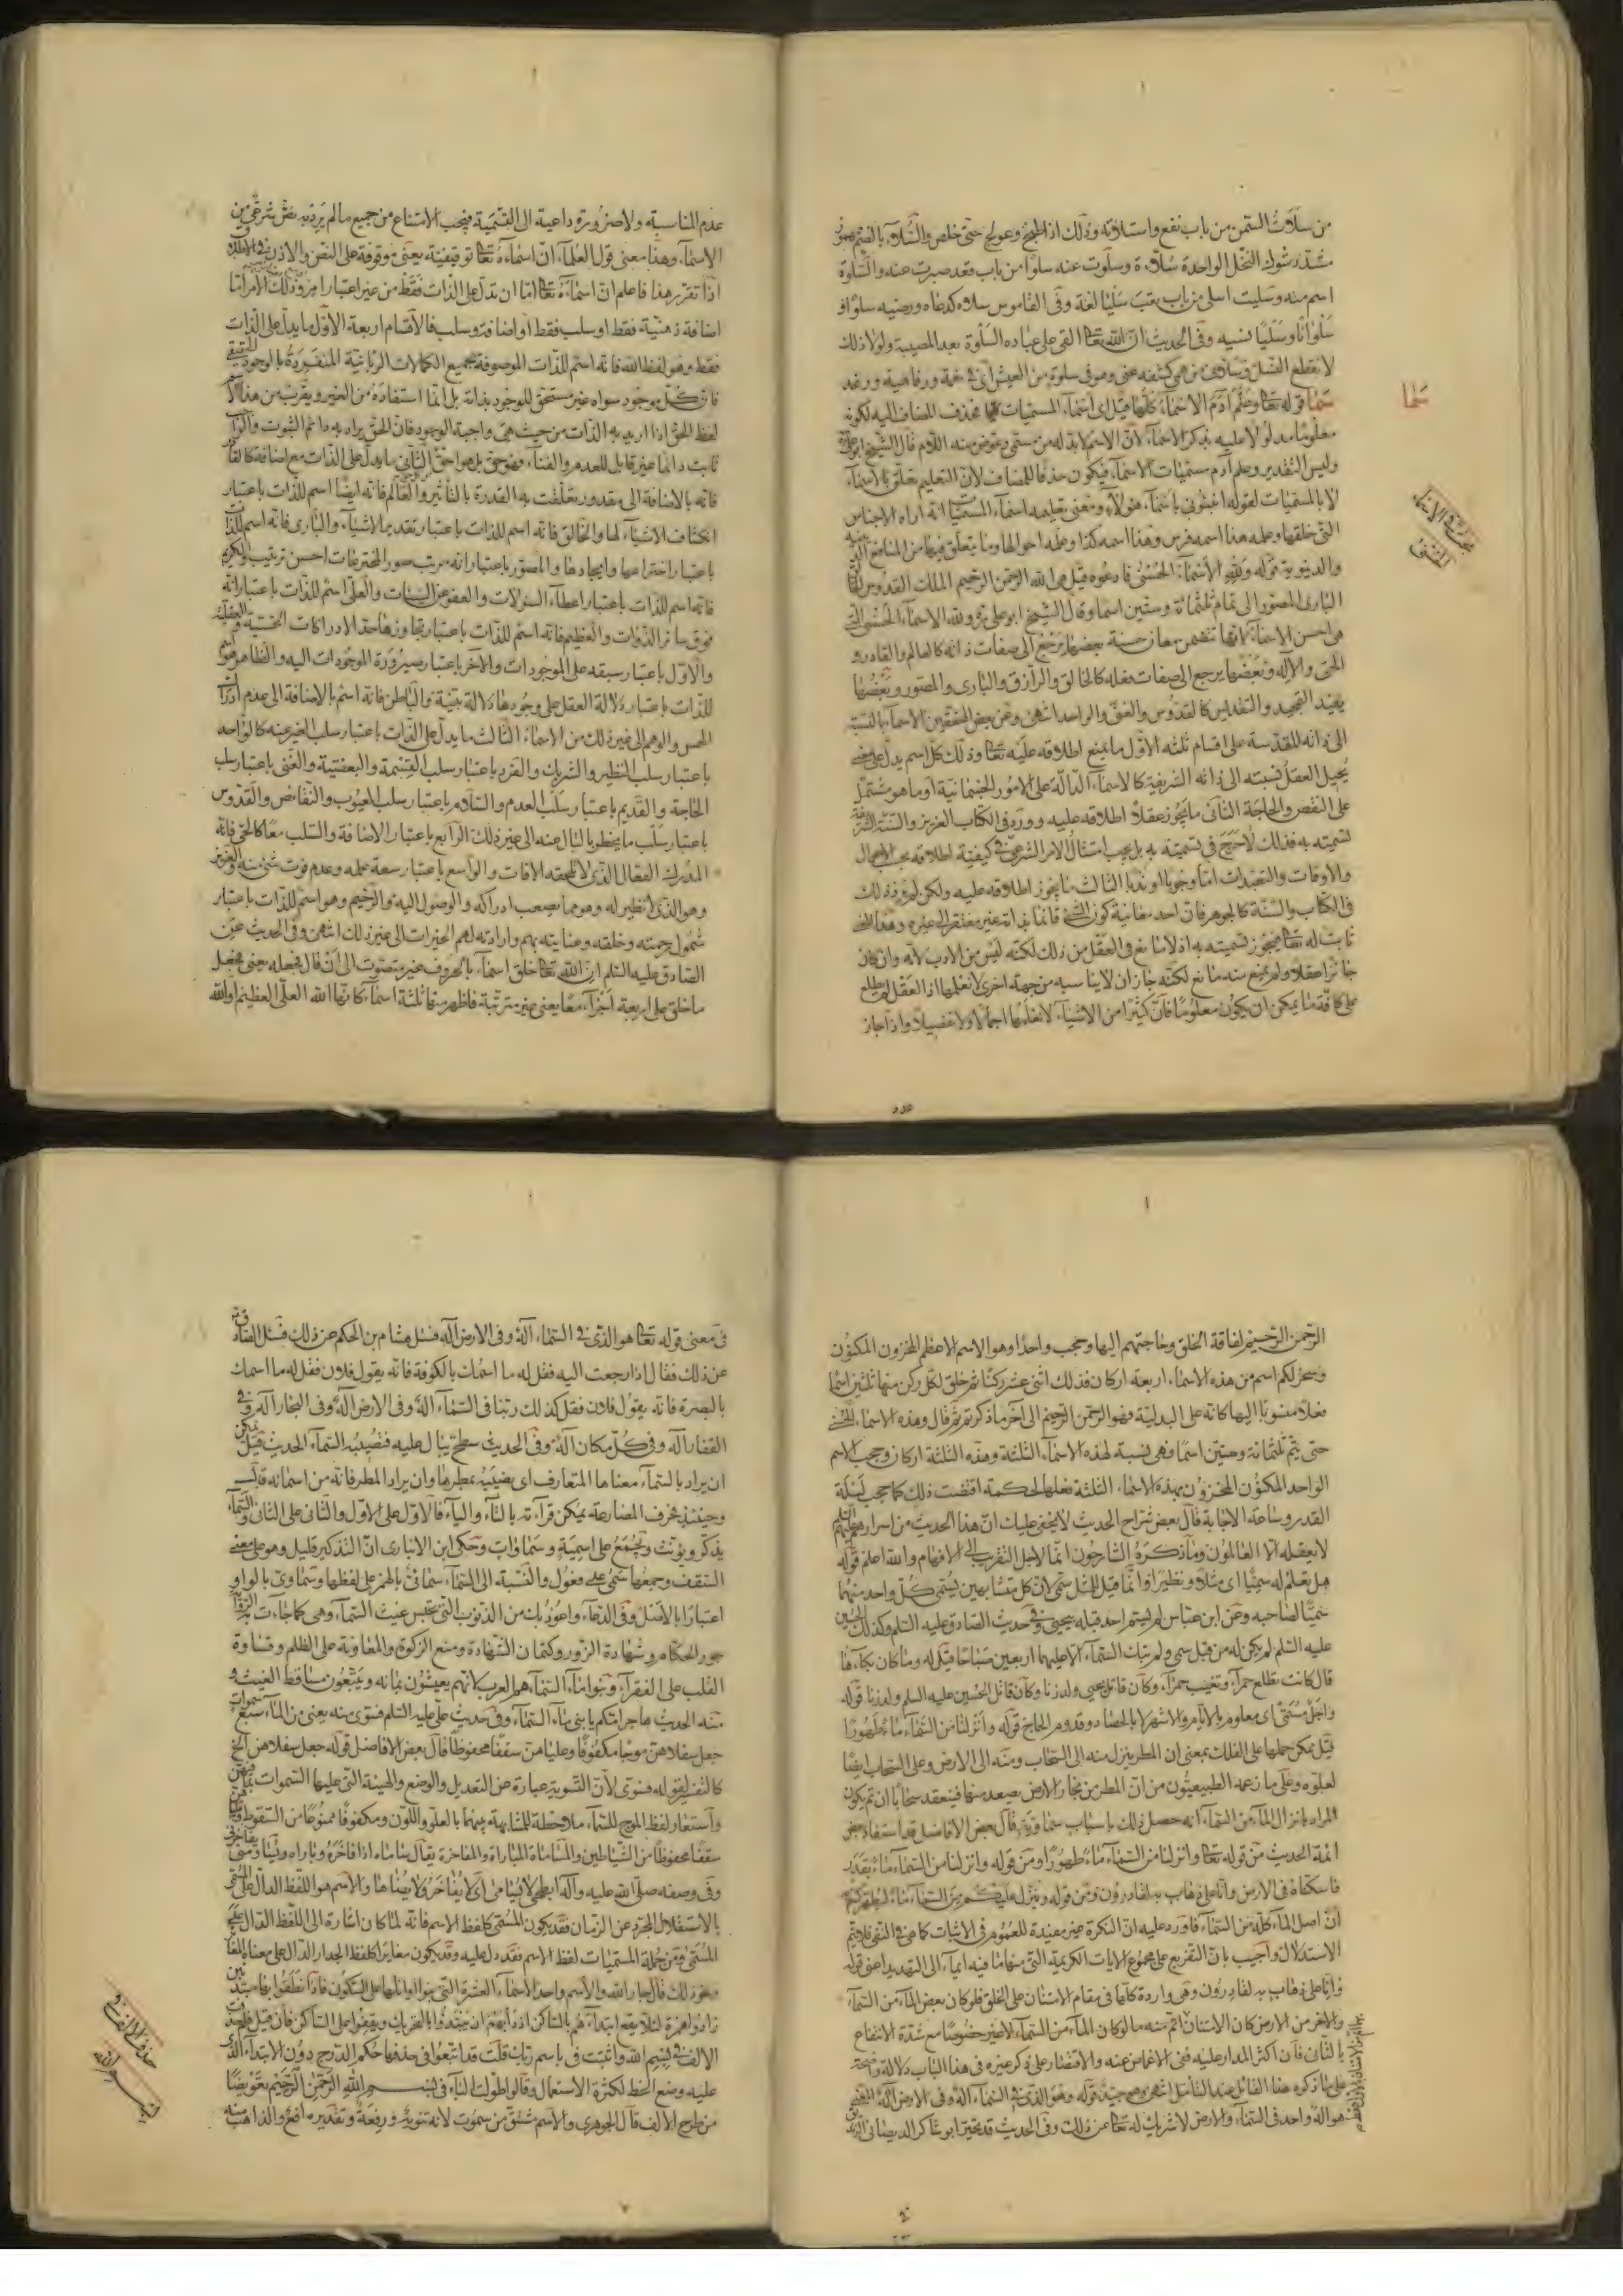 من سلأت السمن من باب نفع واستلأته وذلك اذا طبخ وعولج حتى خلص والسلاء بالضم
مشدد شوك النخل الواحدة سلاءة وسلوت عنه سلوا من باب قعد صبرت عنه والسلوة
اسم منه وسليت اسلى من باب تعب سليا لغة وفى القاموس سلاه كدعاه ورضيه سلوا و
سلوانا وسليا نسيه وفى الحديث ان الله تعا القى على عباده السلوة بعد المصيبة ولولا ذلك
لانقطع النسل وسلانى من همى كشفه عنى وهو فى سلوة من العيش اى فى نعمة ورفاهية ورغد
سما قوله تعا وعلم آدم الاسماء كلها قيل اى اسماء المسميات فحذف المضاف اليه لكونه
معلوما مدلولا عليه بذكر الاسماء لأن الاسم لابد له من مسمى وعوض منه اللام قال الشيخ ابو على
وليس التقدير وعلم آدم مسميات الاسماء فيكون حذفا للمضاف لأن التعليم تعلق بالاسماء
لا بالمسميات لقوله انبئونى باسماء هؤلاء ومعنى تعليمه اسماء المسميات انه اراه الاجناس
التى خلقها وعلمه هذا اسمه فرس وهذا اسمه كذا وعلمه احوالها وما يتعلق بها من المنافع الدينية
والدنيوية قوله ولله الأسماء الحسنى فادعوه قيل هى الله الرحمن الرحيم الملك القدوس الخالق
البارى المصور الى تمام ثلثمائة وستين اسما وقال الشيخ ابو على ره ولله الاسماء الحسنى التى
هى احسن الاسماء لانها تتضمن معان حسنة بعضها يرجع الى صفات ذاته كالعالم والقادر و
الحى والاله وبعضها يرجع الى صفات فعله كالخالق والرازق والبارى والمصور وبعضها
يفيد التمجيد والتقديس كالقدوس والغنى والواحد انتهى وعن بعض المحققين الاسماء بالنسبة
الى ذاته المقدسة على اقسام ثلثة الأول ما يمنع اطلاقه عليه تعا وذلك كل اسم يدل على معنى
يحيل العقل نسبته الى ذاته الشريفة كالاسماء الدالة على الأمور الجسمانية او ما هو مشتمل
على النقص والحاجة الثانى ما يجوز عقلا اطلاقه عليه وورد فى الكتاب العزيز والسنة الشريفة
تسميته به فذلك لا حرج فى تسميته به بل يجب امتثال الامر الشرعى فى كيفية اطلاقه بحسب الاحوال
والاوقات والتعبدات اما وجوبا او ندبا الثالث ما يجوز اطلاقه عليه ولكن لم يرد ذلك
فى الكتاب والسنة كالجوهر فان احد معانيه كون الشئ قائما بذاته غير مفتقر الى غيره وهذا المعنى
ثابت له تعا فيجوز تسميته به اذ لا مانع فى العقل من ذلك لكنه ليس من الادب لأنه وان كان
جائزا عقلا ولم يمنع منه مانع لكنه جاز ان لا يناسبه من جهة اخرى لا نعلمها اذ العقل لم يطلع
على كافة ما يمكن ان يكون معلوما فان كثيرا من الاشياء لا نعلمها اجمالا ولا تفصيلا واذا جاز
سما
بحث فى الاسماء
الحسنى
عدم المناسبة ولا ضرورة داعية الى التسمية فيجب الامتناع من جميع ما لم يرد به نص شرعى من
الاسماء وهذا معنى قول العلماء ان اسماءه تعا توقيفية يعنى موقوفة على النص والاذن فى اطلاقه
اذا تقرر هذا فاعلم ان اسماءه تعا اما ان تدل على الذات فقط من غير اعتبار امر وذلك الأمر اما
اضافة ذهنية فقط او سلب فقط او اضافة وسلب فالأقسام اربعة الأول ما يدل على الذات
فقط وهو لفظ الله فانه اسم للذات الموصوفة بجميع الكمالات الربانية المنفردة بالوجود الحقيقى
فان كل موجود سواه غير مستحق للوجود بذاته بل انما استفاده من الغير ويقرب من هذا الاسم
لفظ الحق اذا اريد به الذات من حيث هى واجبة الوجود فان الحق يراد به دائم الثبوت والواجب
ثابت دائما غير قابل للعدم والفناء فهو حق بل هو احق الثانى ما يدل على الذات مع اضافة كالقادر
فانه بالاضافة الى مقدور تعلقت به القدرة بالتأثير والعالم فانه ايضا اسم للذات باعتبار
انكشاف الاشياء لها والخالق فانه اسم للذات باعتبار تقدير الاشياء والبارى فانه اسم للذات
باعتبار اختراعها وايجادها والمصور باعتبار انه مرتب صور المخترعات احسن ترتيب والكريم
فانه اسم للذات باعتبار اعطاء السؤلات والعفو عن السيئات والعلى اسم للذات باعتبار انه
فوق سائر الذوات والعظيم فانه اسم للذات باعتبار تجاوزها حد الادراكات الحسية والعقلية
والاول باعتبار سبقه على الموجودات والآخر باعتبار صيرورة الموجودات اليه والظاهر هو اسم
للذات باعتبار دلالة العقل على وجودها دلالة بينة والباطن فانه اسم بالاضافة الى عدم ادراك
الحس والوهم الى غير ذلك من الاسماء الثالث ما يدل على الذات باعتبار سلب الغير عنه كالواحد
باعتبار سلب النظير والشريك والفرد باعتبار سلب القسمة والبعضية والغنى باعتبار سلب
الحاجة والقديم باعتبار سلب العدم والسلام باعتبار سلب العيوب والنقائص والقدوس
باعتبار سلب ما يخطر بالبال عنه الى غير ذلك الرابع باعتبار الاضافة والسلب معا كالحى فانه
المدرك الفعال الذى لا تلحقه الافات والواسع باعتبار سعة علمه وعدم فوت شئ منه والعزيز
وهو الذى لا نظير له وهو مما يصعب ادراكه والوصول اليه والرحيم وهو اسم للذات باعتبار
شمول رحمته وخلقه وعنايته بهم وارادته لهم الخيرات الى غير ذلك انتهى وفى الحديث عن
الصادق عليه السلم ان الله تعا خلق اسماء بالحروف غير متصوت الى ان قال فجعله يعنى فجعل
ما خلق على اربعة اجزاء معا يعنى غير مترتبة فاظهر منها ثلثة اسماء كانها الله العلى العظيم او الله
الرحمن الرحيم لفاقة الخلق وحاجتهم اليها وحجب واحدا وهو الاسم الاعظم المخزون المكنون
وسخر لكم اسم من هذه الاسماء اربعة اركان فذلك اثنى عشر ركنا ثم خلق لكل ركن منها ثلثين اسما
فعلا منسوبا اليها كانه على البدلية فهو الرحمن الرحيم الى آخر ما ذكرته ثم قال وهذه الاسماء الحسنى
حتى يتم ثلثمائة وستين اسما فهى نسبة لهذه الاسماء الثلثة وهذه الثلثة اركان وحجب الاسم
الواحد المكنون المخزون بهذه الاسماء الثلثة فعلها لحكمة اقتضت ذلك كما حجب ليلة
القدر وساعة الاجابة قال بعض شراح الحديث لا يخفى عليك ان هذا الحديث من اسرارهم عليهم السلم
لا يعقله الا العالمون وما ذكره الشارحون انما لاجل التقريب الى الافهام والله اعلم قوله
هل تعلم له سميا اى مثلا ونظيرا وانما قيل للمثل سمى لان كل متشابهين يسمى كل واحد منهما
سميا لصاحبه وعن ابن عباس لم يسم احد قبله بيحيى وفى حديث الصادق عليه السلم وكذلك الحسين
عليه السلم لم يكن له من قبل سمى ولم تبك السماء الا عليهما اربعين صباحا قيل له وما كان بكاءها
قال كانت تطلع حمراء وتغيب حمراء وكان قاتل يحيى ولد زنا وكان قاتل الحسين عليه السلم ولد زنا قوله
واجل مسمى اى معلوم بالايام والاشهر لا بالحصاد وقدوم الحاج قوله وانزلنا من السماء ماء طهورا
قيل يمكن حملها على الفلك بمعنى ان المطر ينزل منه الى السحاب ومنه الى الارض وعلى السحاب ايضا
لعلوه وعلى ما زعمه الطبيعيون من ان المطر من بخار الارض يصعد منها فينعقد سحابا ان تم يكون
المراد بانزال الماء من السماء انه حصل ذلك باسباب سماوية قال بعض الافاضل قد استفاد بعض
ائمة الحديث من قوله تعا وانزلنا من السماء ماء طهورا ومن قوله وانزلنا من السماء ماء بقدر
فاسكناه فى الارض وانا على ذهاب به لقادرون ومن قوله وينزل عليكم من السماء ماء ليطهركم به
ان اصل الماء كله من السماء فاورد عليه ان النكرة غير مفيدة للعموم فى الاثبات كما هى فى النفى فلا يتم
الاستدلال واجيب بان التفريع على مجموع الايات الكريمة التى منها ما فيه ايماء الى التهديد اعنى قوله
وانا على ذهاب به لقادرون وهى واردة كلها فى مقام الامتنان على الخلق فلو كان بعض الماء من السماء
والاخر من الارض كان الامتنان اتم منه ما لو كان الماء من السماء لا غير خصوصا مع شدة الانتفاع
بالثانى فان اكثر المدار عليه ففى الاغماض عنه والاقتصار على ذكر غيره فى هذا الباب دلالة واضحة
على ما ذكره هذا القائل عند التأمل انتهى وهى جيدة قوله وهو الذى فى السماء اله وفى الارض اله المعنى
هو اله واحد فى السماء والارض لا شريك له تعا عن ذلك وفى الحديث قد تحير ابو شاكر الديصانى الزنديق
فى معنى قوله تعا هو الذى فى السماء اله وفى الارض اله فسئل هشام بن الحكم عن ذلك فسئل الصادق
عن ذلك فقال اذا رجعت اليه فقل له ما اسمك بالكوفة فانه يقول فلان فقل له ما اسمك
بالبصرة فانه يقول فلان فقل كذلك ربنا فى السماء اله وفى الارض اله وفى البحار اله وفى
القفار اله وفى كل مكان اله وفى الحديث سطح يبال عليه فتصيبه السماء الحديث قيل يمكن
ان يراد بالسماء معناها المتعارف اى يصيبه بمطرها وان يراد المطر فانه من اسمائه قال
وحينئذ فحرف المضارعة يمكن قرآءته بالتاء والياء فالاول على الاول والثانى على الثانى والسماء
يذكر ويؤنث وتجمع على اسمية وسماوات وحكى ابن الانبارى ان التذكير قليل وهو على معنى
السقف وجمعها سمى على فعول والنسبة الى السماء سمائى بالهمز على لفظها وسماوى بالواو
اعتبارا بالاصل وفى الدعاء واعوذ بك من الذنوب التى تحبس غيث السماء وهى كما جاءت به الرواية
جور الحكام وشهادة الزور وكتمان الشهادة ومنع الزكوة والمعاونة على الظلم وقساوة
القلب على الفقراء وبنو ماء السماء هم العرب لانهم يعيشون بمائه ويتبعون مساقط الغيث و
منه الحديث هاجر امكم يا بنى ماء السماء وفى حديث على عليه السلم فسوى منه يعنى من الماء سبع سموات
جعل سفلاهن موجا مكفوفا وعلياهن سقفا محفوظا قال بعض الافاضل قوله جعل سفلاهن الخ
كالتفسير لقوله فسوى لأن التسوية عبارة عن التعديل والوضع والهيئة التى عليها السموات بما فيهن
واستعار لفظ الموج للسماء ملاحظة للمشابهة بينهما بالعلو واللون ومكفوفا ممنوعا من السقوط
سقفا محفوظا من الشياطين والمساماة المباراة والمفاخرة يقال ساماه اذا فاخره وباراه
وفى وصفه صلى الله عليه وآله ابطحى لا يسامى اى لا يفاخر ولا يضاهى والاسم هو اللفظ الدال على المسمى
بالاستقلال المجرد عن الزمان فقد يكون المسمى كلفظ الاسم فانه لما كان اشارة الى اللفظ الدال على
المسمى ومن جملة المسميات لفظ الاسم فقد دل عليه وقد يكون مغايرا كلفظ الجدار الدال على معناه المغاير
ونحو ذلك قال جار الله والاسم واحد الأسماء العشرة التى بنوا اوائلها على السكون فاذا نطقوا بها مبتدئين
زادوا همزة لئلا يقع ابتداءهم بالساكن اذ دأبهم ان يبتدؤا بالمتحرك ويقفوا على الساكن فان قيل فلم حذفت
الالف فى بسم الله واثبتت فى باسم ربك قلت قد اتبعوا فى حذفها حكم الدرج دون الابتداء الذى
عليه وضع الخط لكثرة الاستعمال وقالوا طولت الباء فى بسم الله الرحمن الرحيم تعويضا
من طرح الالف قال الجوهرى والاسم مشتق من سموت لانه تنويه ورفعة وتقديره افع والذاهب منه
حذف الالف فى
بسم الله